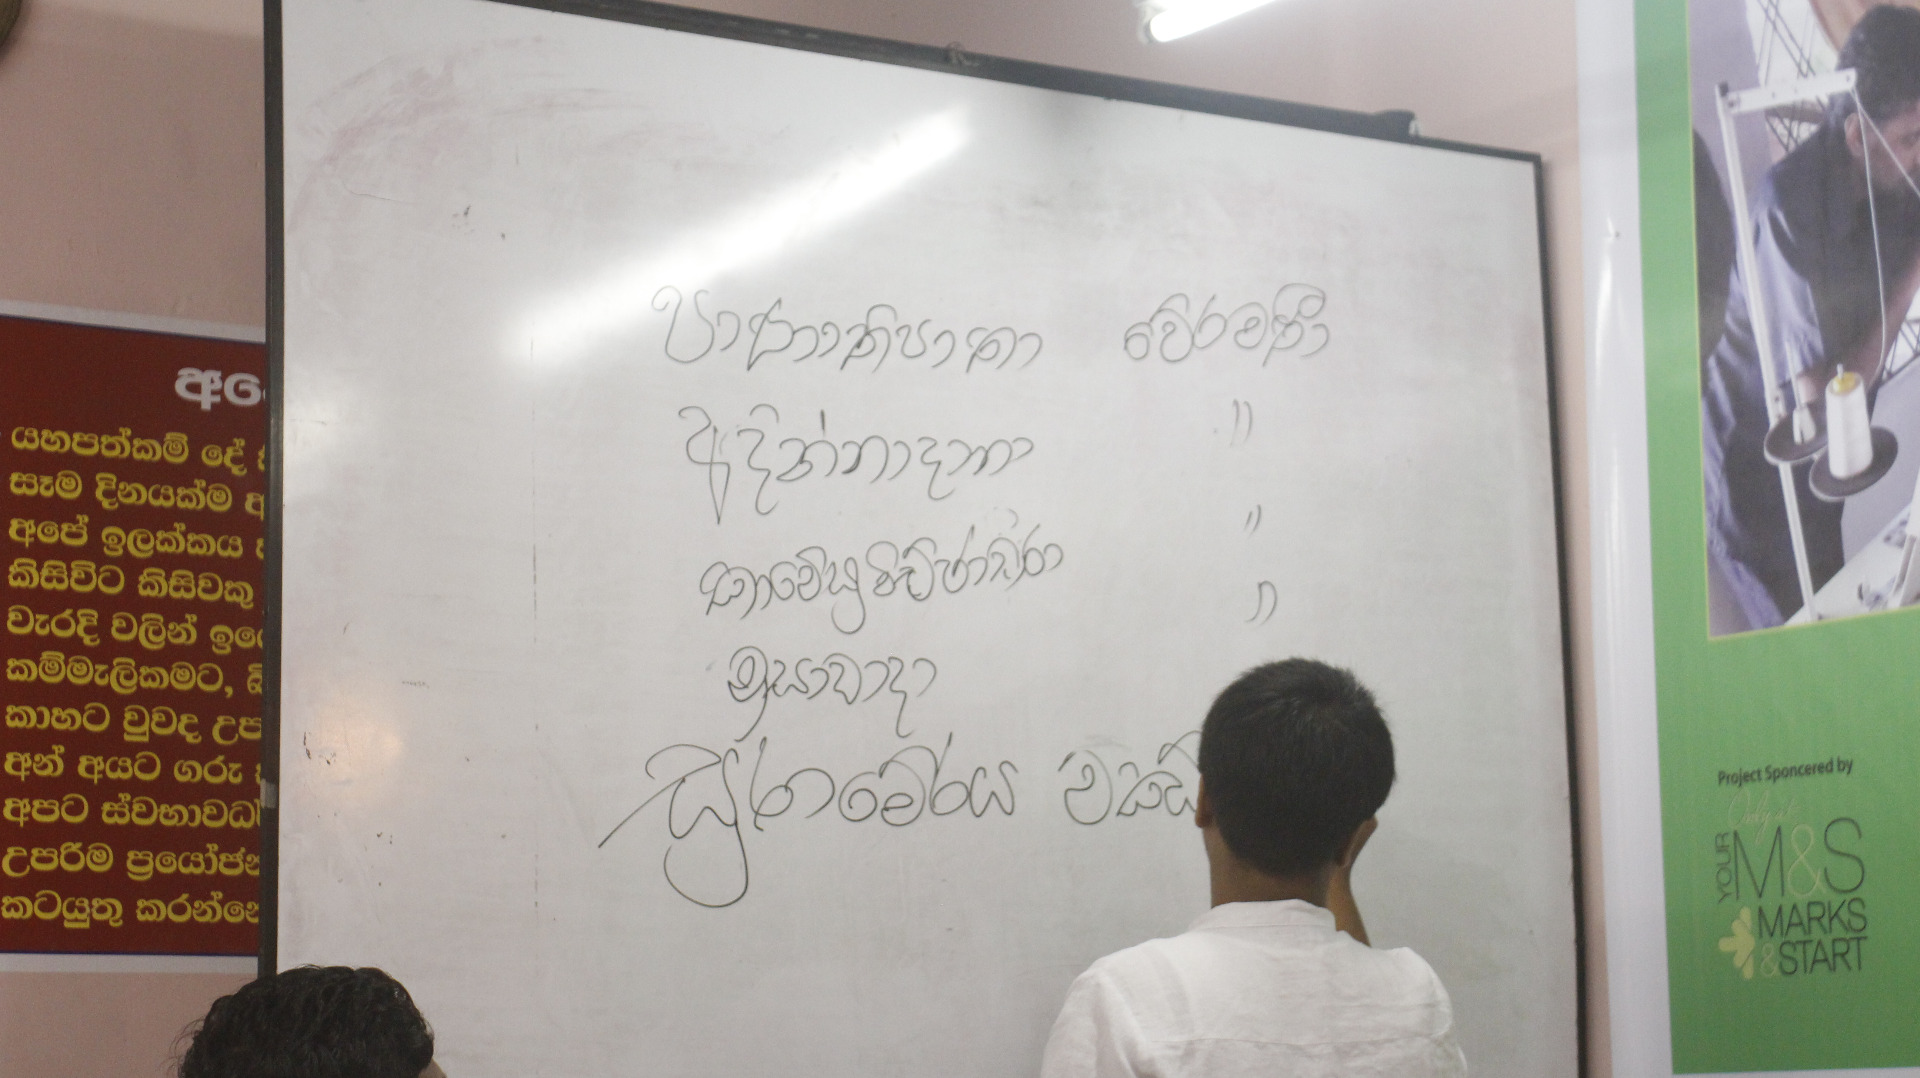 අපේ
යහපත්කම් දේ
සෑම දිනයක්ම
අපේ ඉලක්කය
කිසිවිට කිසිවකු
වැරදි වලින්
කම්මැලිකමට,
කාහට වුවද
අන් අයට ගරු
අපට
උපරිම
කටයුතු
පාණාතිපාතා වේරමණී
අදින්නාදානා "
කාමේසුමිච්ඡාචාරා "
මුසාවාදා "
සුරාමේරය
Project Sponcered by
Only at
YOUR M&S
MARKS
&START